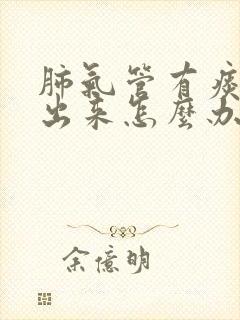 肺氣管有痰
出来怎麼办
余億明